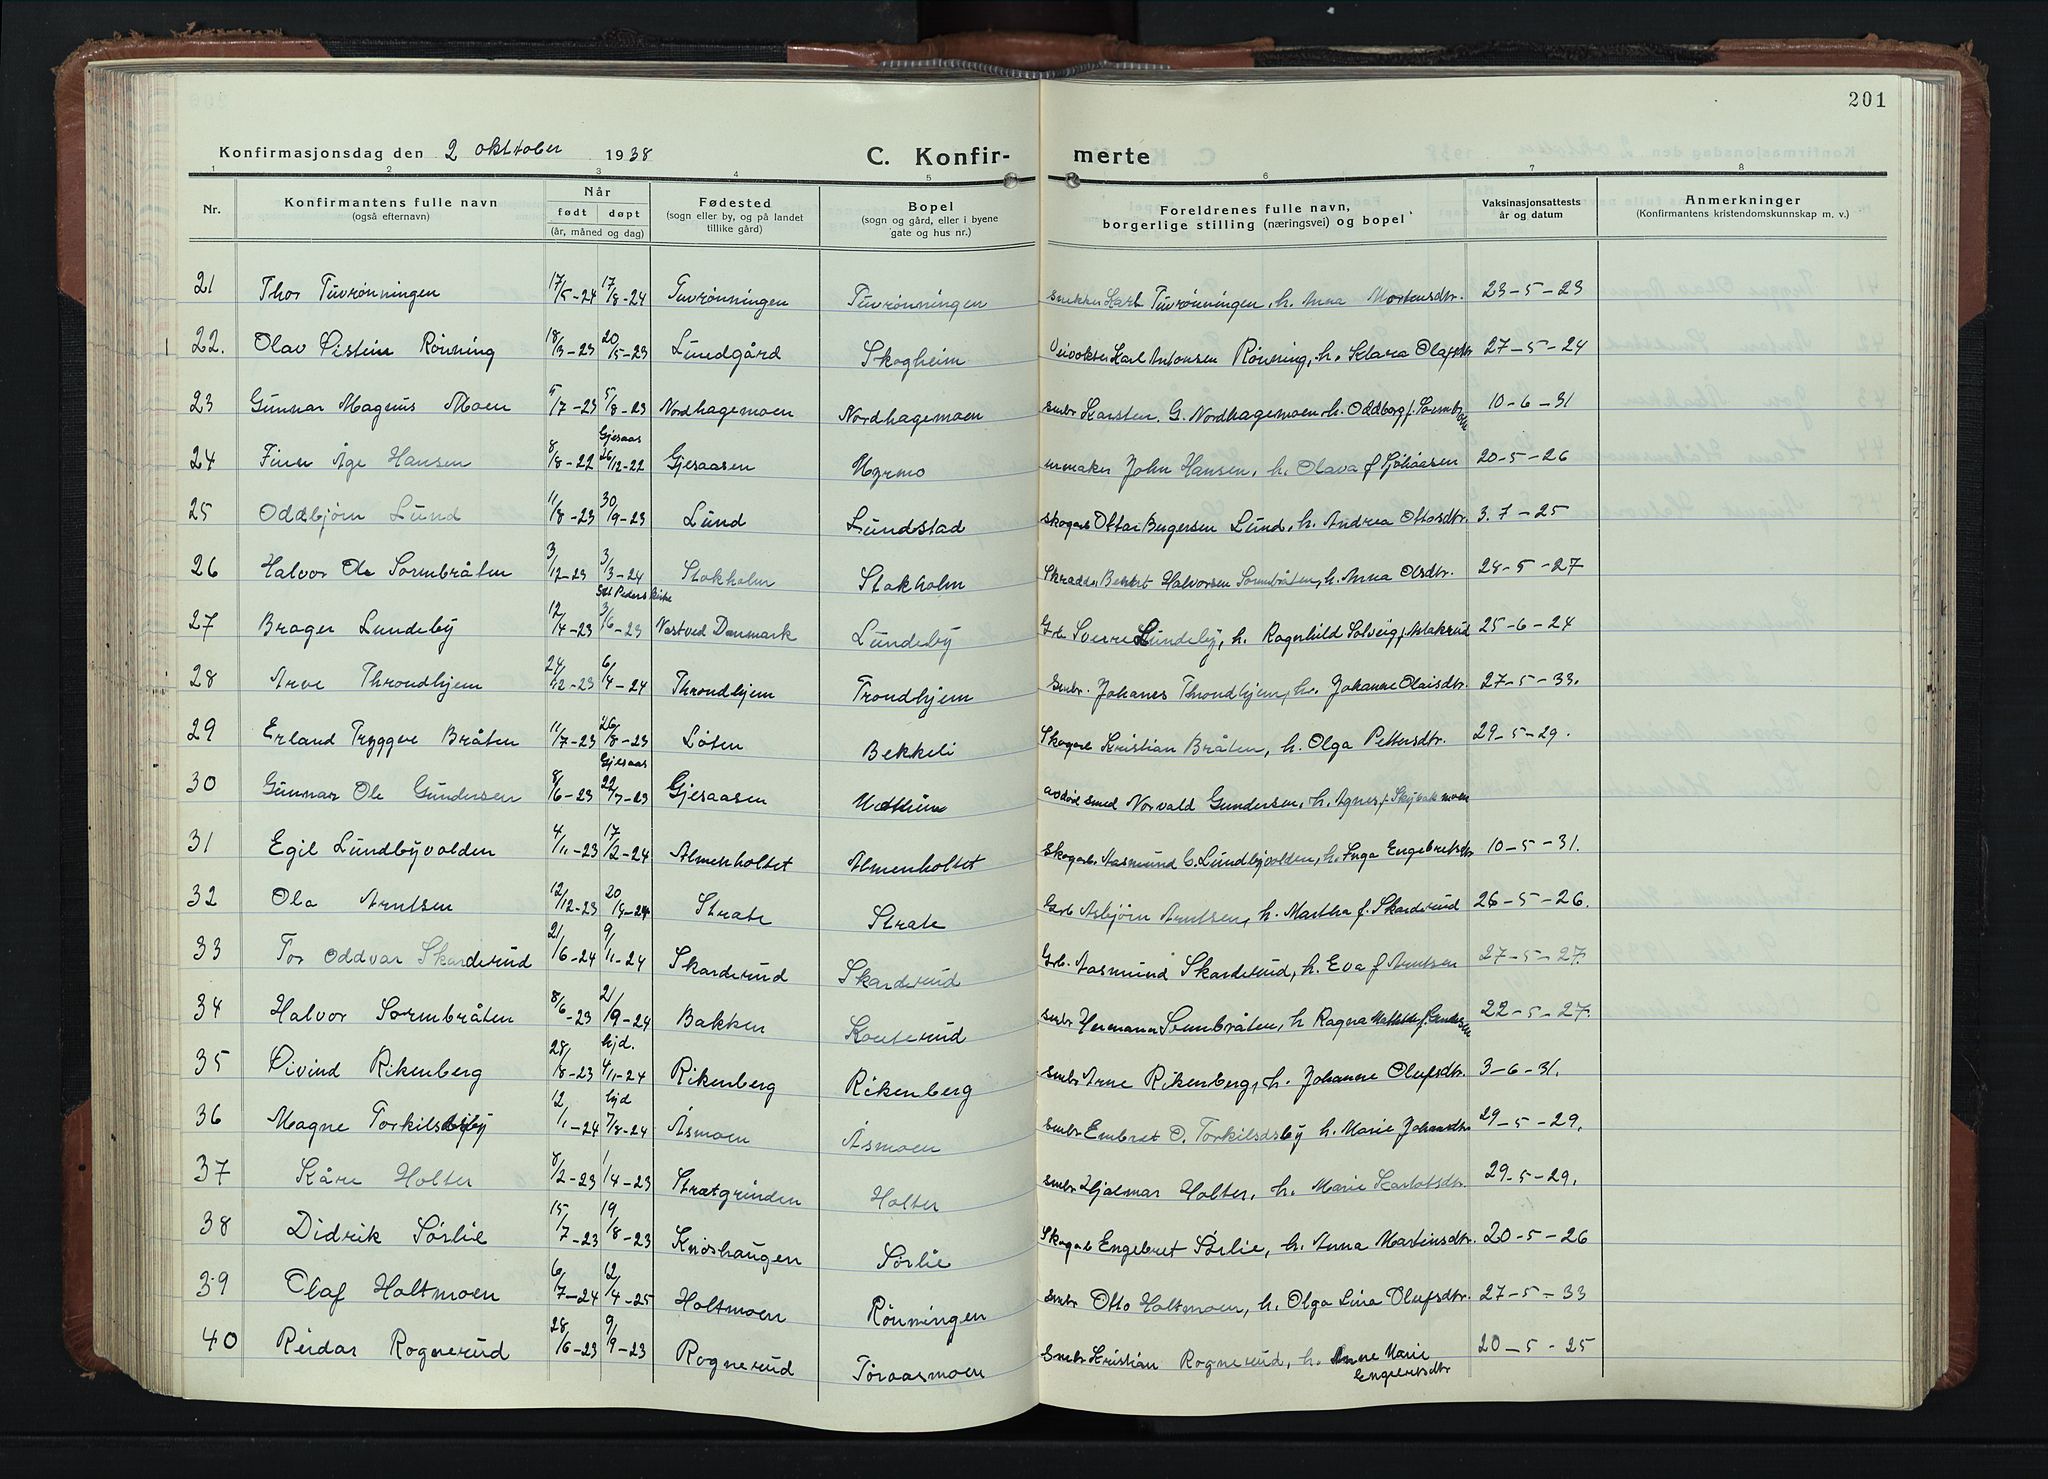 201
Konfirmasjonsdag den 2 oktober 1938 C. Konfir- merte
1 2 3 4 5 6 7 8
Nr. Konfirmantens fulle navn (også efternavn) Når født døpt (år, måned og dag) Fødested (sogn eller by, og på landet tillike gård) Bopel (sogn og gård, eller i byene gate og hus nr.) Foreldrenes fulle navn, borgerlige stilling (næringsvei) og bopel Vaksinasjonsattests år og datum Anmerkninger (Konfirmantens kristendomskunnskap m. v.)
21 Thor Tuvrønningen 17/5-24 17/8-24 Tuvrønningen Tuvrønningen snekker Karl Tuvrønningen, h. Anna Mortensdtr. 23-5-23
22. Olav Øistein Rønning 18/3-23 20/5-23 Lundgård Skogheim Veivokter Karl Antonsen Rønning, h. Klara Olafsdtr 27-5-24
23 Gunnar Magnus Moen 5/7-23 5/8-23 Nordhagemoen Nordhagemoen smbr Karsten. G. Nordhagemoen h. Oddborg f. Sormbroen 10-6-31
24 Finn Åge Hansen 8/8-22 Gjesaas 26/12-22 Gjesaasen Myrmo urmaker John Hansen, h. Olava f 20-5-26
25 Oddbjørn Lund 11/8-23 30/9-23 Lund Lundstad skogarb Ottar Bergersen Lund, h. Andrea Ottosdtr. 3.7-25
26 Halvor Ole Sormbråten 3/12-23 3/3-24 Stokholm Stokholm Skradder Bernt Halvorsen Sormbråten, h. Anna Olsdtr. 24-5-27
27 Brager Lundeby 12/4-23 Skt Peders kirke 3/6-23 Nestved Danmark Lundeby Grb Sverre Lundeby, h. Ragnhild Solveig f Aslakrud 25-6-24
28 Arve Throndhjem 24/12-23 6/4-24 Throndhjem Trondhjem Smbr. Johanes Throndhjem, h. Johanne Olaisdtr. 27-5-33.
29 Erland Tryggve Bråten 11/7-23 26/8-23 Løten Bekkeli Skogarb Kristian Bråten, h. Olga Pettersdtr. 29-5-29.
30 Gunnar Ole Gundersen 8/6-23 Gjesaas 22/7-23 Gjesaasen avdøde smed Norvald Gundersen, h. Agnes f. Skybakmoen
31 Egil Lundbyvolden 4/11-23 17/2-24 Almenholtet Almenholtet Skogarb. Aasmund C. Lundbyvolden, h. Inga Engebretsdtr 10-5-31.
32 Ola Arntsen 12/12-23 20/4-24 Strate Strate Grb Asbjørn Arntsen, h. Martha f. Skarderud 26-5-26.
33 Tor Oddvar Skarderud 21/6-24 9/11-24 Skarderud Skarderud Grb. Aasmund Skarderud, h. Eva f Arntsen 27-5-27.
34 Halvor Sormbråten 8/6-23 21/9-24 Bakken Kouterud smbr Hermann Sormbråten, h Ragna Mathilde f. Gundersen 22-5-27.
35 Øivind Rikenberg 28/8-23 hjd. 4/11-24 Rikenberg Rikenberg smbr Arne Rikenberg, h. Johanne Olufsdtr. 3-6-31.
36 Magne Torkildsby 12/1-24 hjd 7/8-24 Åsmoen Åsmoen smbr Embret O. Torkildsby h. Marie Johansdtr 29-5-29.
37 Kåre Holter 8/2-23 1/4-23 Stratgrinden Holter smbr Hjalmar Holter, h. Marie Karlotsdtr. 29-5-29.
38 Didrik Sørlie 15/7-23 19/8-23 Knøshaugen Sørlie Skogarb Engebret Sørlie, h. Anna Martinsdtr. 20-5-26
39 Olaf Holtmoen 6/7-24 12/4-25 Holtmoen Rønningen smbr Otto Holtmoen, h. Olga Lina Olufsdtr. 27-5-33
40 Reidar Rognerud 28/6-23 9/9-23 Rognerud Toraasmoen Smbr Kristian Rognerud, h. Anne Marie Engebretsdtr 20-5-25